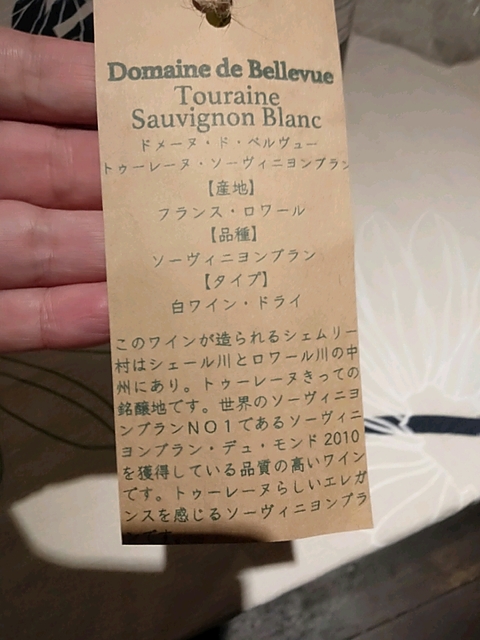 Domaine de Bellevue
Touraine
Sauvignon Blanc
ドメーヌ・ド・ベルヴュー
トゥーレーヌ・ソーヴィニヨンブラン
【産地】
フランス・ロワール
【品種】
ソーヴィニヨンブラン
【タイプ】
白ワイン・ドライ
このワインが造られるシェムリー
村はシェール川とロワール川の中
州にあり。トゥーレーヌきっての
銘醸地です。世界のソーヴィニヨ
ンブランNO1であるソーヴィニ
ヨンブラン・デュ・モンド2010
を獲得している品質の高いワイン
です。トゥーレーヌらしいエレガ
ンスを感じるソーヴィニヨンブラ